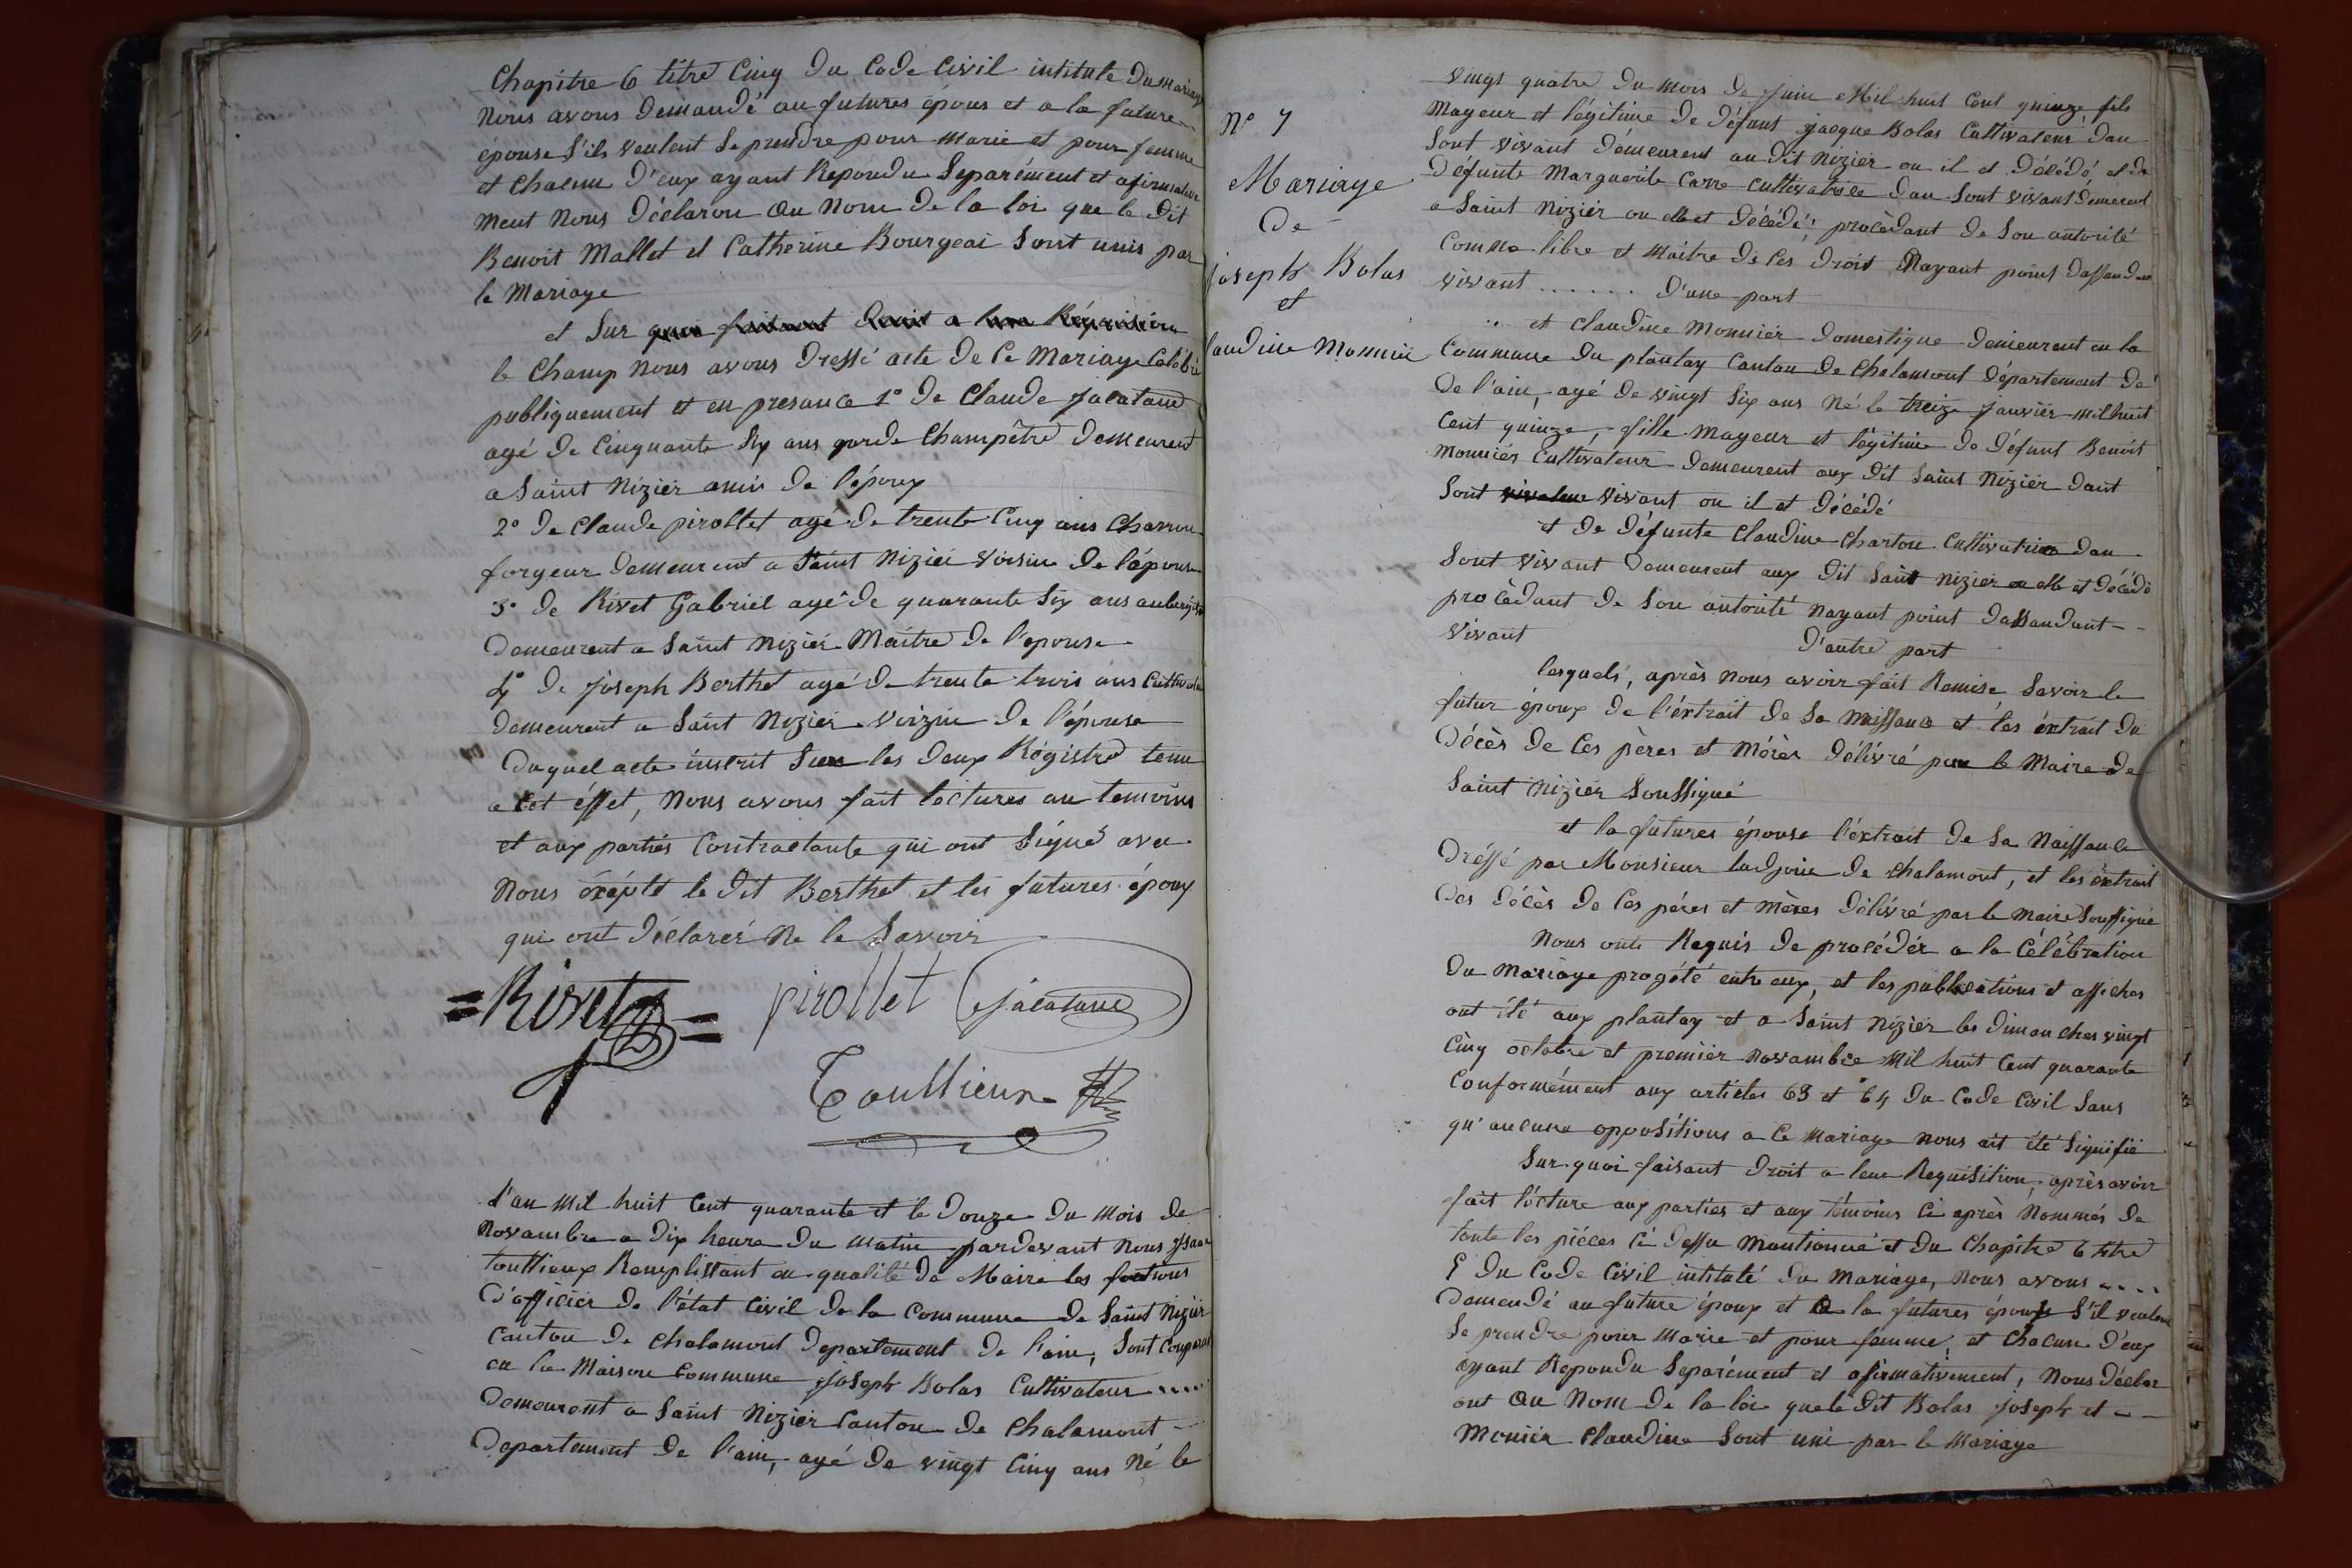 Chapitre 6 titre Cinq du Code Civil intitulé du mariage
Nous avons demandé au futures épous et a la future
épouse s'ils veulent se prendre pour marie et pour femme
et chacun d'eux ayant Repondu Separément et afirmative
ment Nous déclaron au Nom de la loi que le dit
Benoit Mallet et Catherine Bourgeai sont unis par
le Mariage
et sur quoi faisant droit a leur Réquisition
le Champ nous avons dressé acte de ce Mariage Célébré
publiquement et en presance 1° de Claude Jacatane
agé de Cinquante Six ans garde Champêtre demeurent
a Saint Nizier amis de l'époux
2° de Claude pirollet agé de trente Cinq ans Charron
forgeur demeurent a Saint Nizier voisin de l'épouse
3° de Rivet Gabriel agé de quarante Six ans aubergiste
demeurent a Saint Nizier Maitre de l'epouse
4° de Joseph Berthet agé de trente trois ans Cultivateur
demeurent a Saint Nizier voizin de l'épouse
duquel acte inscrit Sur les deux Régistre tenu
a cet éffet, nous avons fait lectures au temoins
et aux parties Contractante qui ont Signé avec
nous éxépté le dit Berthet et les futures époux
qui ont déclarés ne le Savoir
Rivet pirollet Jacatane
Toullieux
L'an mil huit Cent quarante et le douze du mois de
Novambre a dix heure du matin pardevant nous ysaac
Toullieux Remplissant en qualité de Maire les foctions
d'officier de l'état Civil de la Commune de Saint Nizier
Canton de Chalamont Departement de l'ain, sont Comparus
en la Maison Commune Joseph Bolas Cultivateur ....
demeurent a Saint Nizier Canton de Chalamont
Departement de l'ain, agé de vingt Cinq ans Né le
N° 7
Mariage
De
joseph Bolas
et
laudine Monnier
vingt quatre du mois de Juin Mil huit Cent quinze, fils
Mayeur et légitime de défunt Jacque Bolas Cultivateur dan
Sont vivant démeurent au dit Nizier ou il et décédé, et de
Défunte Marguerite Carre Cultivatrice dan Sont vivant demeurent
a Saint Nizier ou elle et décédé; procèdant de Son autorité
Comme libre et maitre de ces droit Nayant point dassandan
vivant ...... d'une part
et claudine Monnier domestique demeurent en la
Commune du plantay Canton de Chalamont département de
de l'ain, agé de vingt Six ans Né le treize Janvier mil huit
Cent quinze, fille Mayeur et légitime de défunt Benoit
Monnies Cultivateur demeurent aux dit Saint Nizier dant
Sont vivant ou il et décédé
et de défunte Claudine Charton Cultivatrice dan
Sont vivant demeurent aux dit Saint Nizier ou elle et décédé
procèdant de Son autorité Nayant point dassandant
vivant d'autre part
lesquels, après nous avoir fait Remise Savoir le
futur époux de l'éxtrait de Sa Naissance et les éxtrait du
décès de Ces pères et mérès délivré par le Maire de
Saint Nizier Soussigné
et la futures épouse l'éxtrait de Sa Naissance
dréssé par Monsieur ladjoin de Chalamont, et les éxtrait
des décès de Ces péres et mères délivré par le Maire Soussigné
Nous onte Requis de procédér a la Célébration
du mariage progété entre eux, et les publications et affiches
ont été aux plantay et a Saint Nizier les dimanches vingt
Cinq octobre et premier Novambre Mil huit Cent quarante
Conformément aux articles 63 et 64 du Code Civil Sans
qu'aucune oppositions a Ce Mariage nous ait été Signifié
Sur quoi faisant droit a leur Requisition, après avoir
fait lécture aux parties et aux témoins Ci après Nommés de
toute les piéces Ci dessu mantionné et du Chapitre 6 titre
5 du Code Civil intitulé du Mariage, nous avons ....
demendé au future époux et a la futures épouse S'il veulent
Se prendre pour Marie et pour femme, et Chacune d'eux
ayant Repondu Separément et afirmativement, Nous déclar
ont au Nom de la loi que le dit Bolas Joseph et
Monier Claudine Sont uni par le Mariage